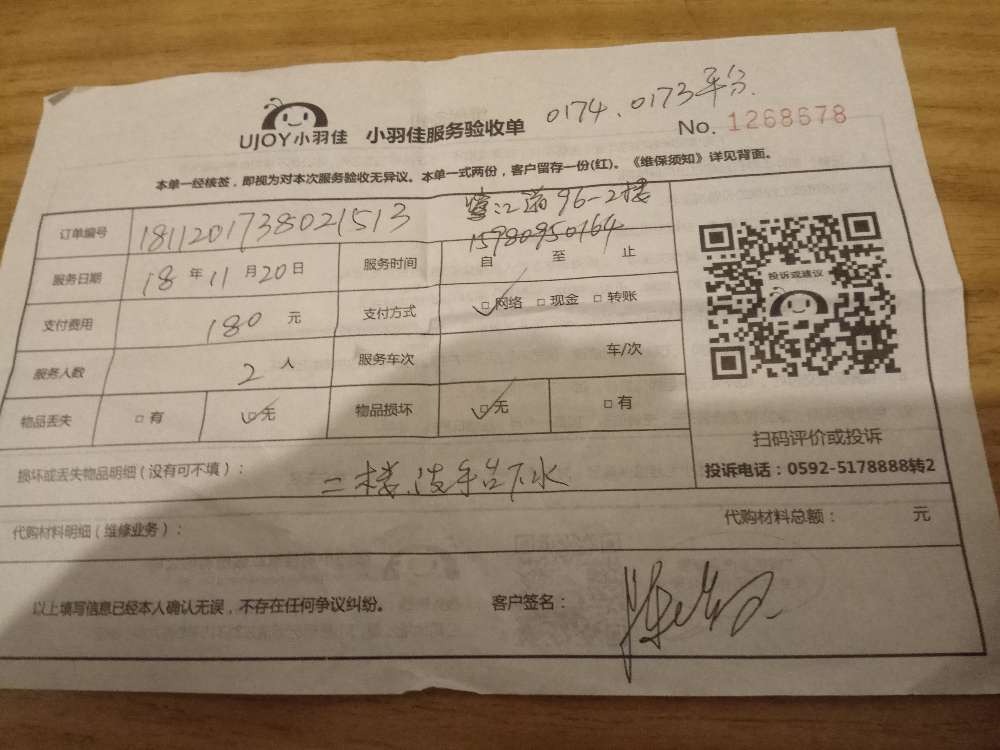 0174、0173平分
UJOY小羽佳 小羽佳服务验收单 No. 1268678
本单一经核签，即视为对本次服务验收无异议。本单一式两份，客户留存一份(红)。《维保须知》详见背面。
订单编号 1811201738021513
江道96-2楼
15980950164
服务日期 18年11月20日 服务时间 自 至 止
投诉或建议
支付费用 180元 支付方式 □网络 □现金 □转账
服务人数 2人 服务车次 车/次
物品丢失 □有 □无 物品损坏 □无 □有
扫码评价或投诉
损坏或丢失物品明细(没有可不填)： 二楼、洗手台下水
投诉电话：0592-5178888转2
代购材料明细(维修业务)： 代购材料总额： 元
以上填写信息已经本人确认无误，不存在任何争议纠纷。 客户签名：